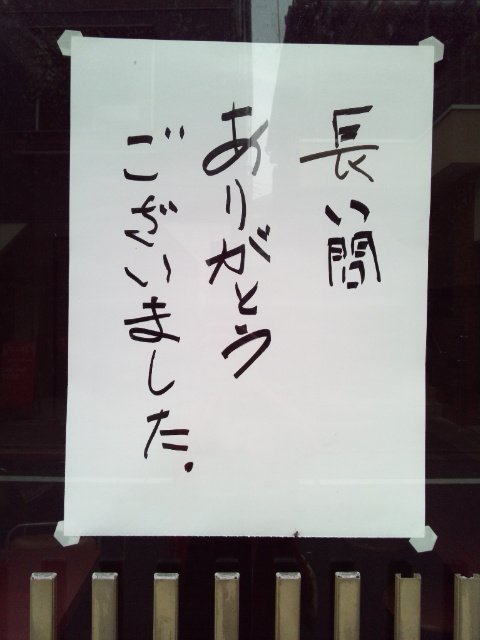 長い間
ありがとう
ございました.